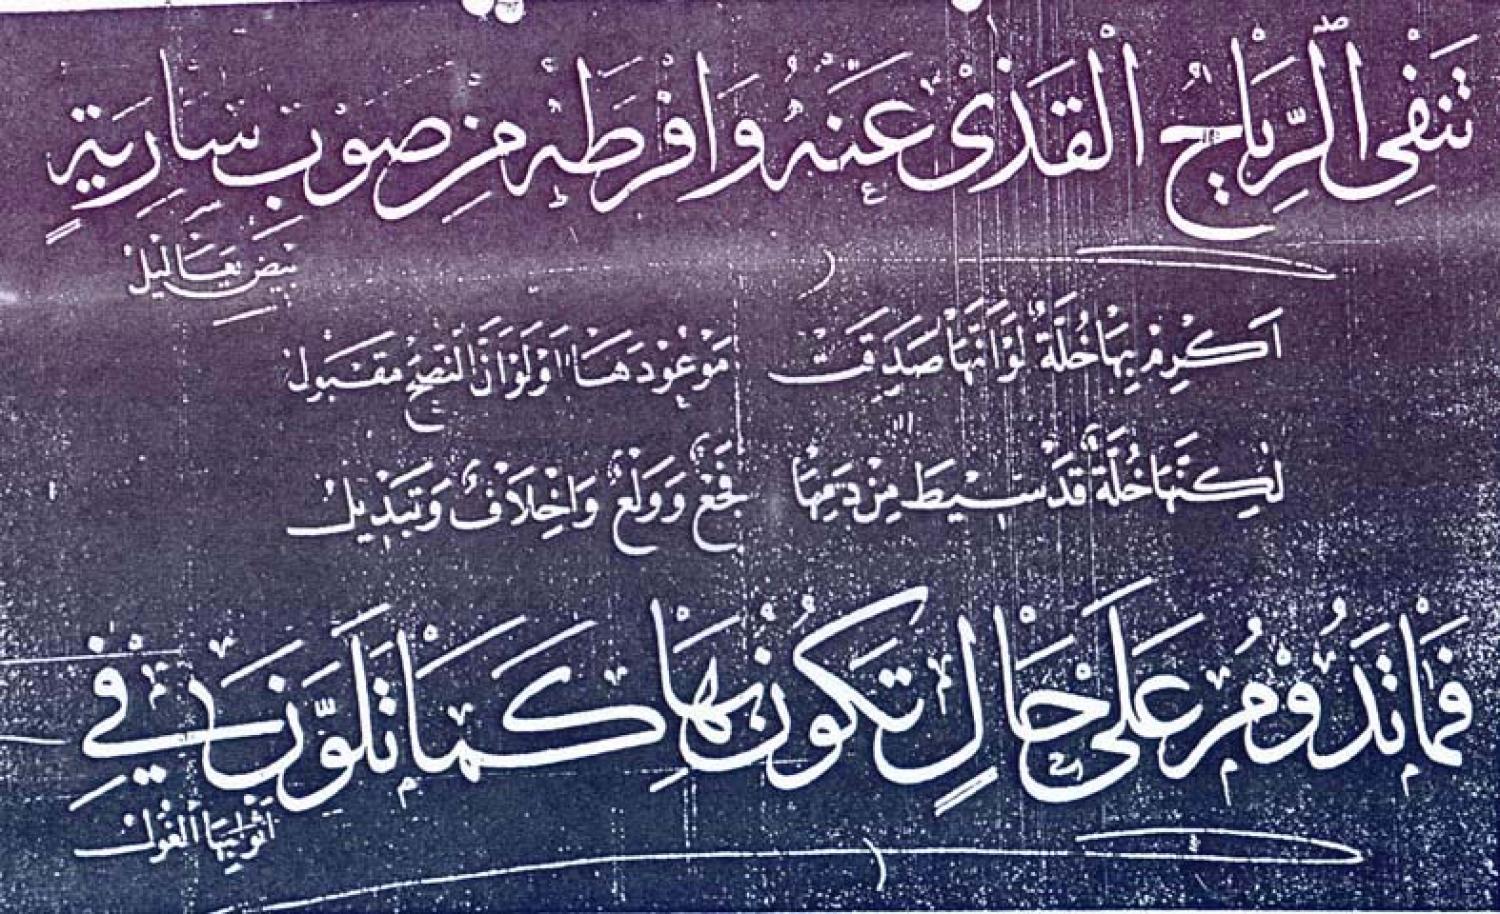 تَنْفِى الرِّيَاحُ الْقَذٰى عَنْهُ وَاَفْرَطَهُ مِنْ صَوْبِ سَارِيَةٍ
بِيْضٌ يَعَالِيْلُ
اَكْرِمْ بِهَا خُلَّةً لَوْ اَنَّهَا صَدَقَتْ مَوْعُوْدَهَا اَوْ لَوْ اَنَّ النُّصْحَ مَقْبُوْلُ
لٰكِنَّهَا خُلَّةٌ قَدْ سِيْطَ مِنْ دَمِهَا فَجْعٌ وَوَلْعٌ وَاِخْلَافٌ وَتَبْدِيْلُ
فَمَا تَدُوْمُ عَلَى حَالٍ تَكُوْنُ بِهَا كَمَا تَلَوَّنُ فِى
اَثْوَابِهَا الْغُوْلُ